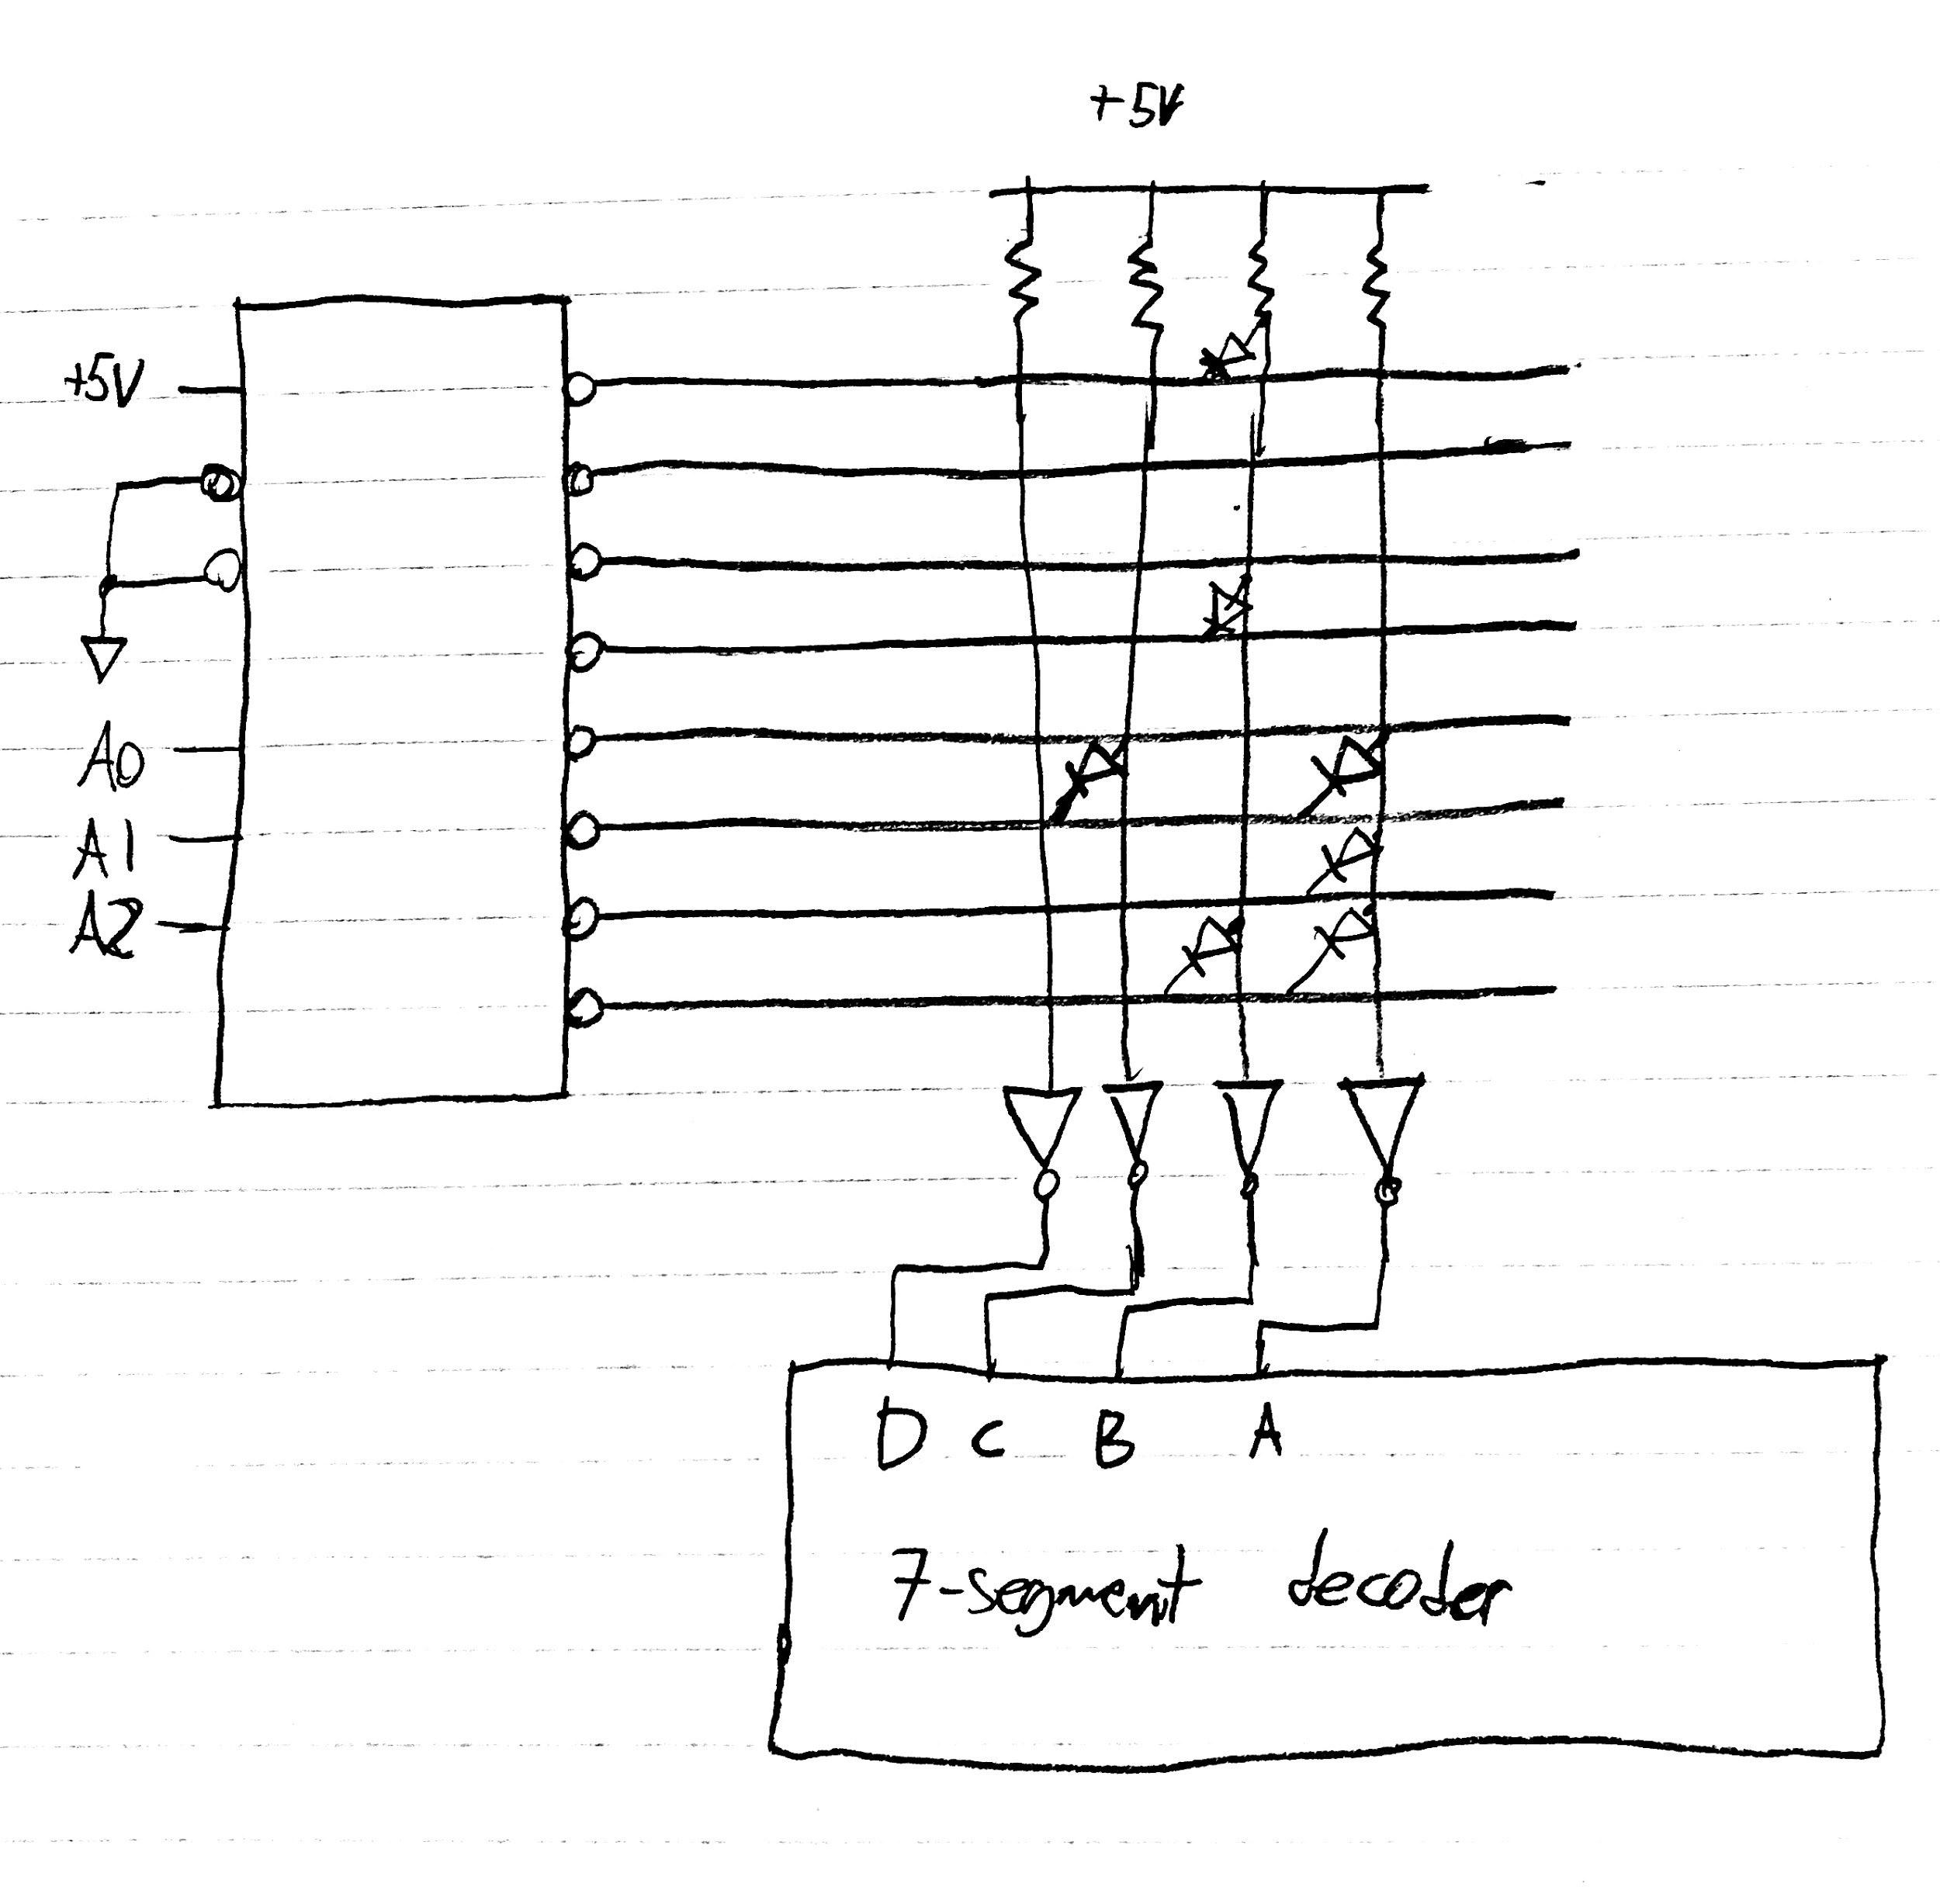 +5V
+5V
A0
A1
A2
D C B A
7-segment decoder